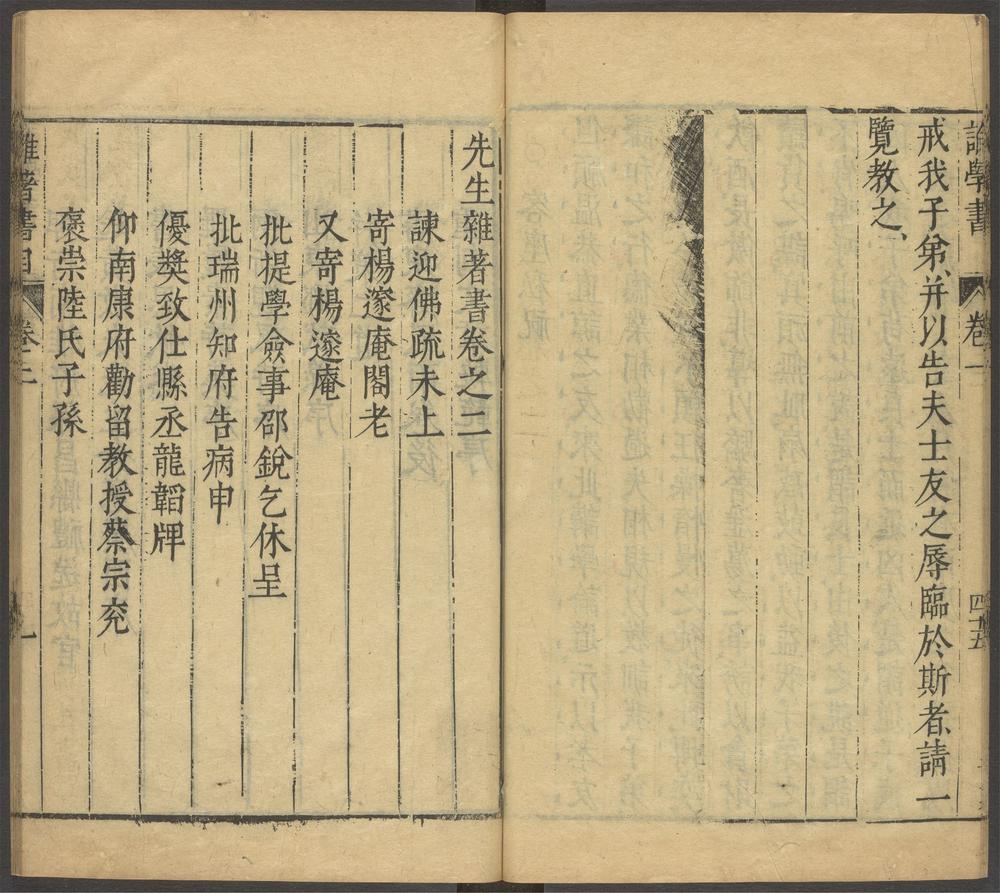 論學書 卷一 四十五
戒我子弟、并以告夫士友之辱臨於斯者、請一
覽教之、
先生雜著書卷之二
諫迎佛疏未上
寄楊邃庵閣老
又寄楊邃庵
批提學僉事邵銳乞休呈
批瑞州知府告病申
優奬致仕縣丞龍韜牌
仰南康府勸留教授蔡宗兖
褒崇陸氏子孫
雜著書目 卷二 一